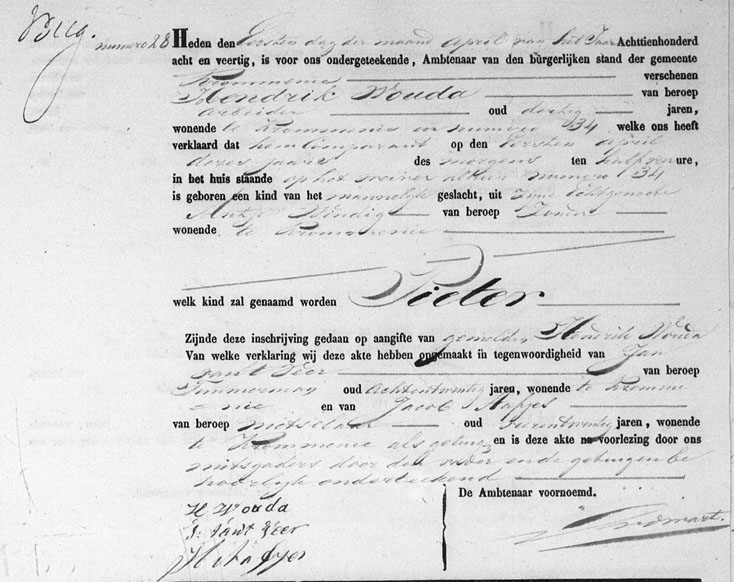 numero 28 Heden den Eersten dag der maand April van het Jaar Achttienhonderd
acht en veertig, is voor ons ondergeteekende, Ambtenaar van den burgerlijken stand der gemeente
Krommenie verschenen
Hendrik Wouda van beroep
arbeider oud dertig jaren,
wonende te Krommenie in numero 434 welke ons heeft
verklaard dat hem Comparant op den Eersten April
dezes jaars des morgens ten half vier ure,
in het huis staande op het numero 434
is geboren een kind van het mannelijk geslacht, uit zyne Echtgenoote
Antje Windigt van beroep Zonder
wonende te Krommenie
welk kind zal genaamd worden Pieter
Zijnde deze inschrijving gedaan op aangifte van gemelden Hendrik Wouda
Van welke verklaring wij deze akte hebben opgemaakt in tegenwoordigheid van Jan
van't Veer van beroep
Timmerman oud Achtentwintig jaren, wonende te Kromme
nie en van Jacob
van beroep metselaar oud jaren, wonende
te Krommenie als getuigen en is deze akte na voorlezing door ons
mitsgaders door den vader en de getuigen be
hoorlyk onderteekend
De Ambtenaar voornoemd.
H Wouda
J: van't Veer